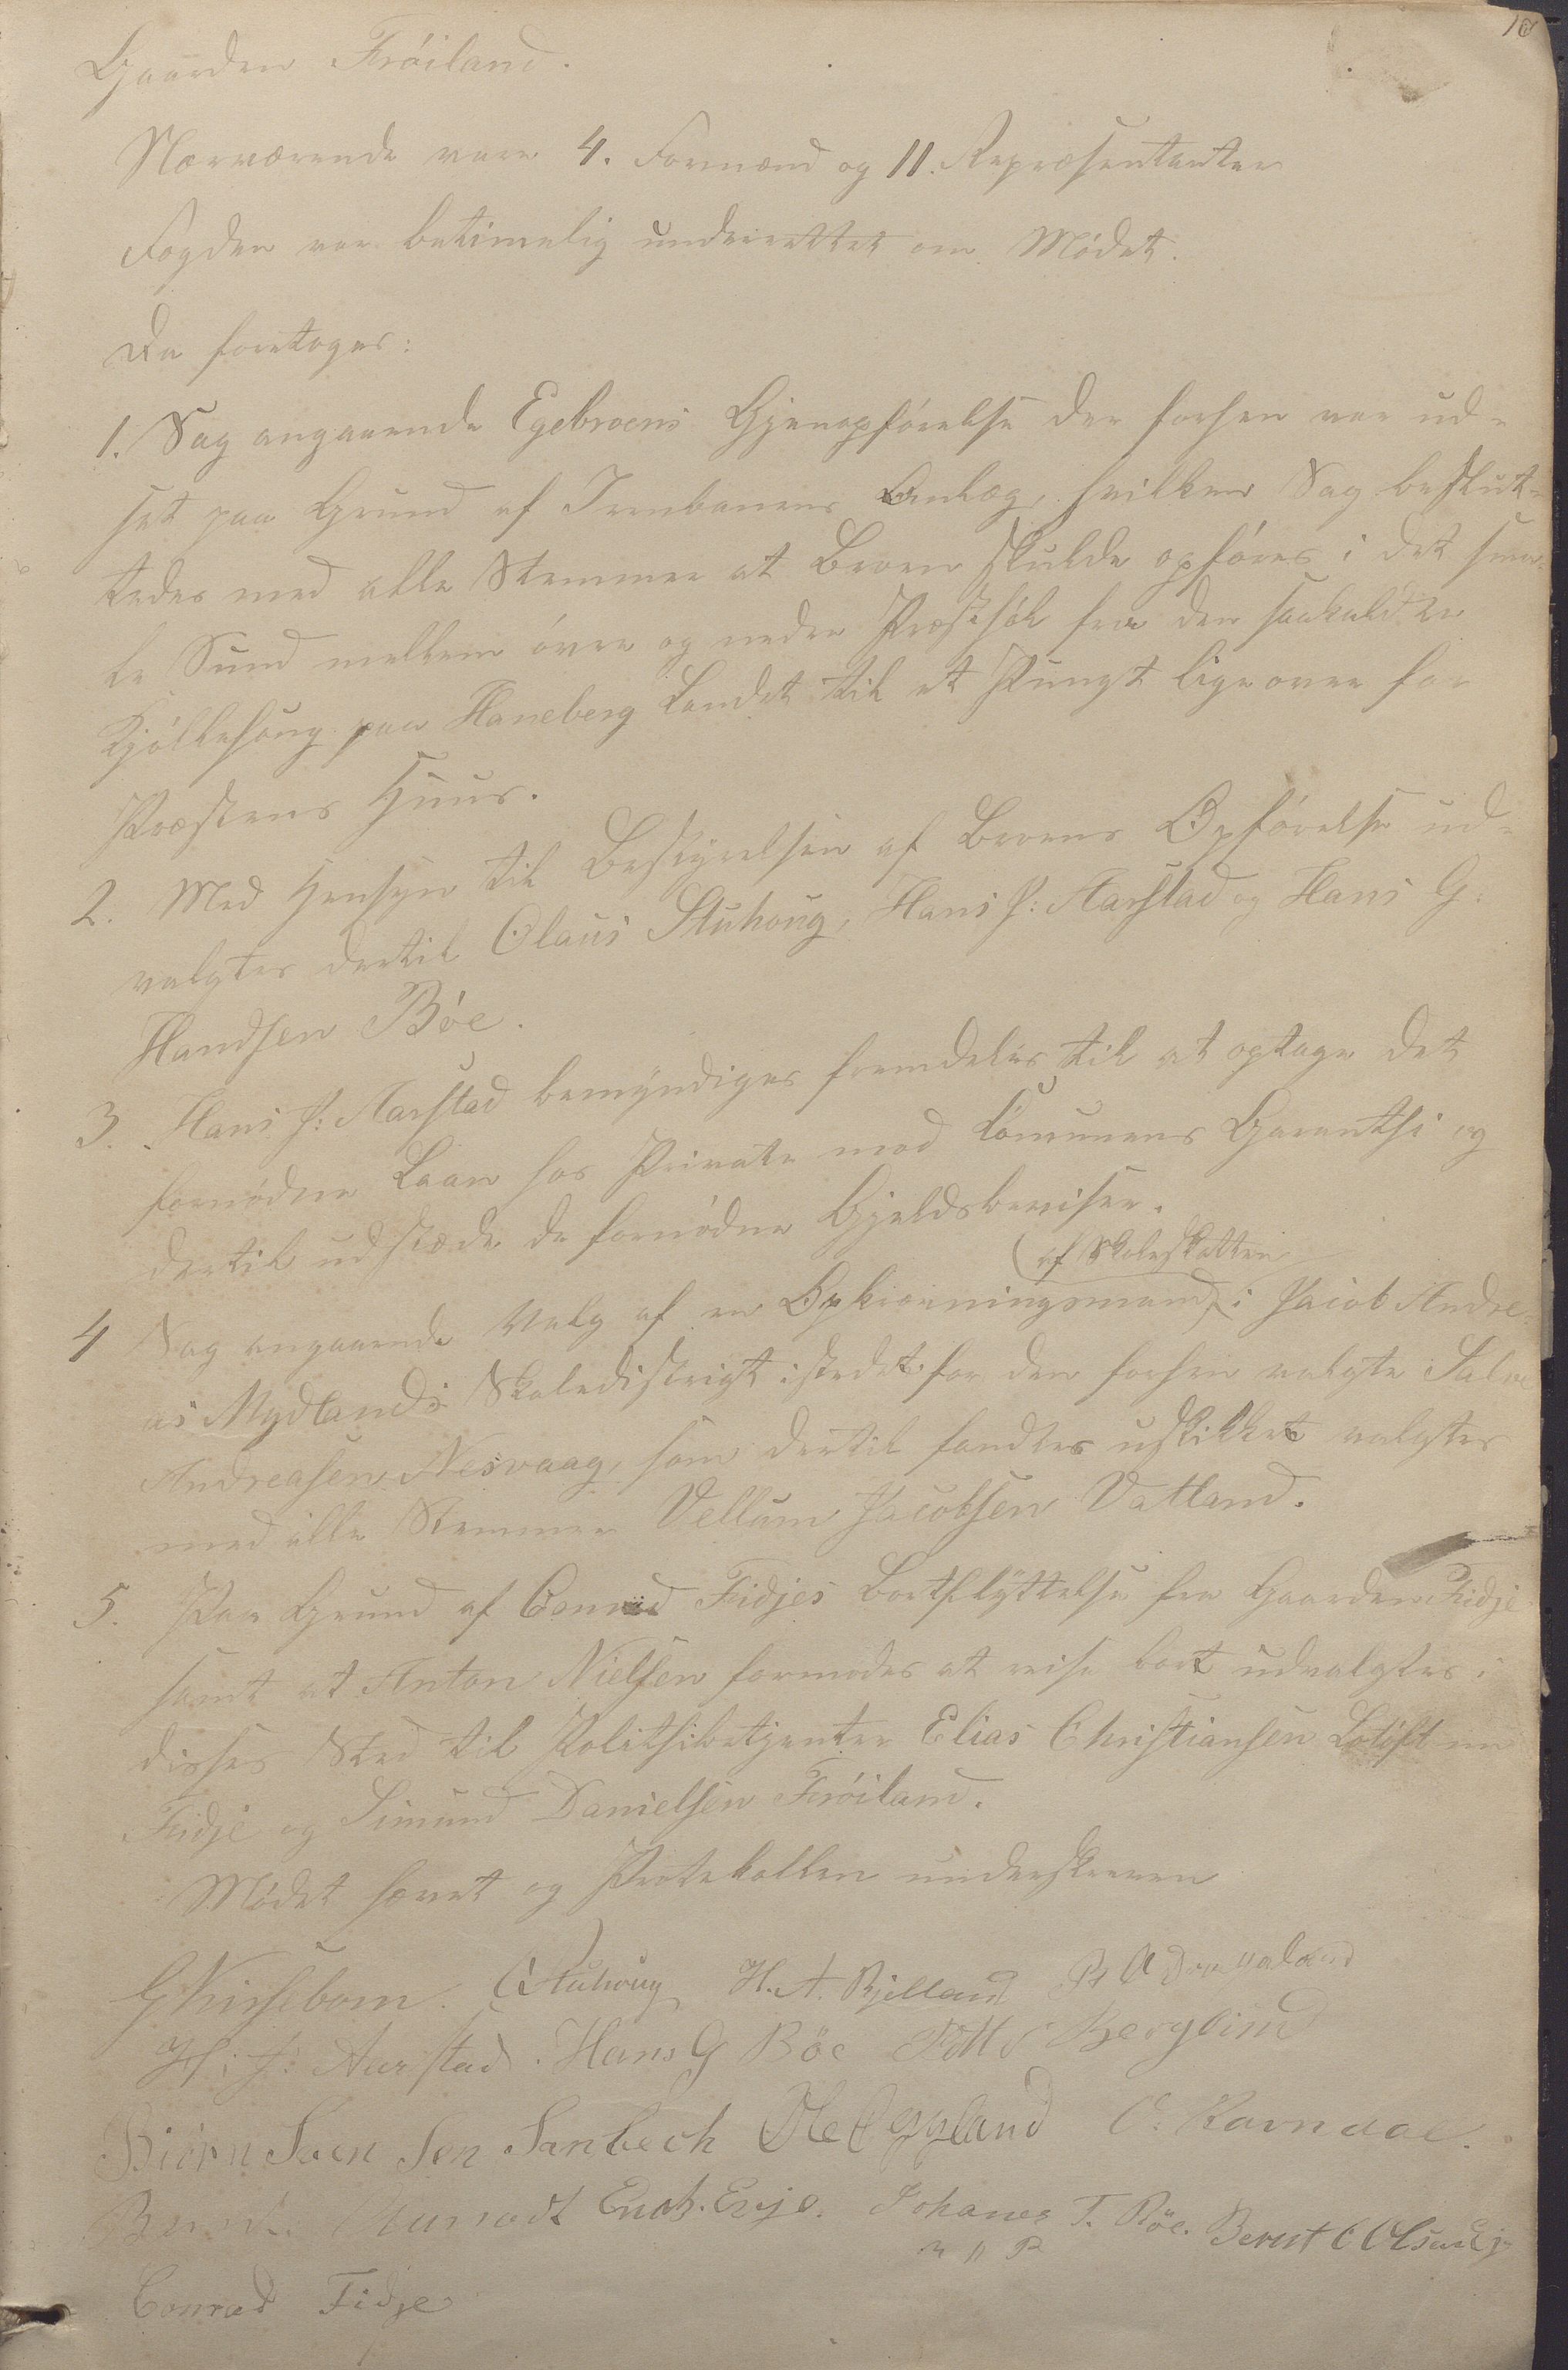 10
Gaarden Fröiland.
Nærværende vare 4. Formænd og 11. Repræsentanter
Fogden var betimelig underrettet om Mödet.
Da foretoges:
1. Sag angaaende Egebroens Gjenopförelse der forhen var ud-
sat paa Grund af Jernbanens Anlæg, hvilken Sag beslut-
tedes med alle Stemmer at Broen skulde opföres i det sma-
le Sund mellem övre og nedre Præsthöl fra den saakaldte
Kjöllehaug paa Haneberg Landet til et Pungt ligeover for
Præstens Huus.
2. Med Hensyn til Bestyrelsen af Broens Opförelse ud-
valgtes dertil Olaus Stuhoug, Hans J: Aarstad og Hans G.
Handsen Böe.
3. Hans J: Aarstad bemyndiges fremdeles til at optage det
fornödne Laan hos Private mod Comunens Garanthi og
dertil udstæde de fornödne Gjeldsbeviser.
(af Skoleskatten
4 Sag angaaende Valg af en Opkrævningsmand i Jacob Andre-
as Mydlands Skoledistrigt istedet for den forhen valgte Salve
Andreasen Nesvaag, som dertil fandtes uskikket valgtes
med alle Stemmer Vellum Jacobsen Vatland.
5. Paa Grund af Conrad Fidjes Bortflyttelse fra Gaarden Fidje
samt at Anton Nielsen formodes at reise bort udvalgtes i
disses Sted til Politibetjenter Elias Christiansen
Fidje og Simund Danielsen Fröiland.
Mödet hævet og Protokollen underskreven
G Kirsebom. O Stuhoug H. A. Bjelland
H: J: Aarstad. Hans G Böe Berglind
Biörn Sven Sen Sanbech Ole Eggland O. Ravndal.
Enok. Eeje. Johanes T. Böe. Bernt C Olsen Eje
m p P
Conrad Fidje